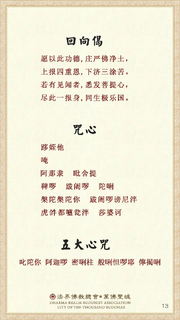 回向偈
愿以此功德，庄严佛净土，
上报四重恩，下济三涂苦。
若有见闻者，悉发菩提心，
尽此一报身，同生极乐国。
咒心
跢姪他
唵
阿那隶 毗舍提
鞞啰 跋阇啰 陀唎
槃陀槃陀你 跋阇啰谤尼泮
虎𤙖都嚧瓮泮 莎婆诃
五大心咒
叱陀你 阿迦啰 密唎柱 般唎怛啰耶 儜揭唎
法界佛教總會 萬佛聖城
DHARMA REALM BUDDHIST ASSOCIATION
CITY OF TEN THOUSAND BUDDHAS
13